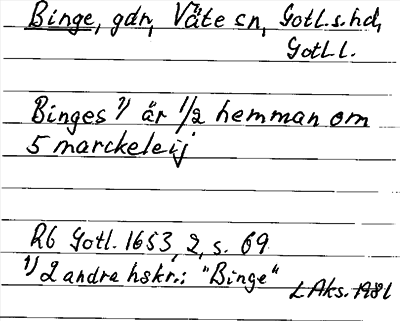 Binge, gdn, Väte sn, Gotl.s.hd,
Gotl l.
Binges 1) är 1/2 hemman om
5 marckeleij
RG Gotl. 1653, 2, s. 69
1) 2 andra hskr.: "Binge"
LAks. 1981